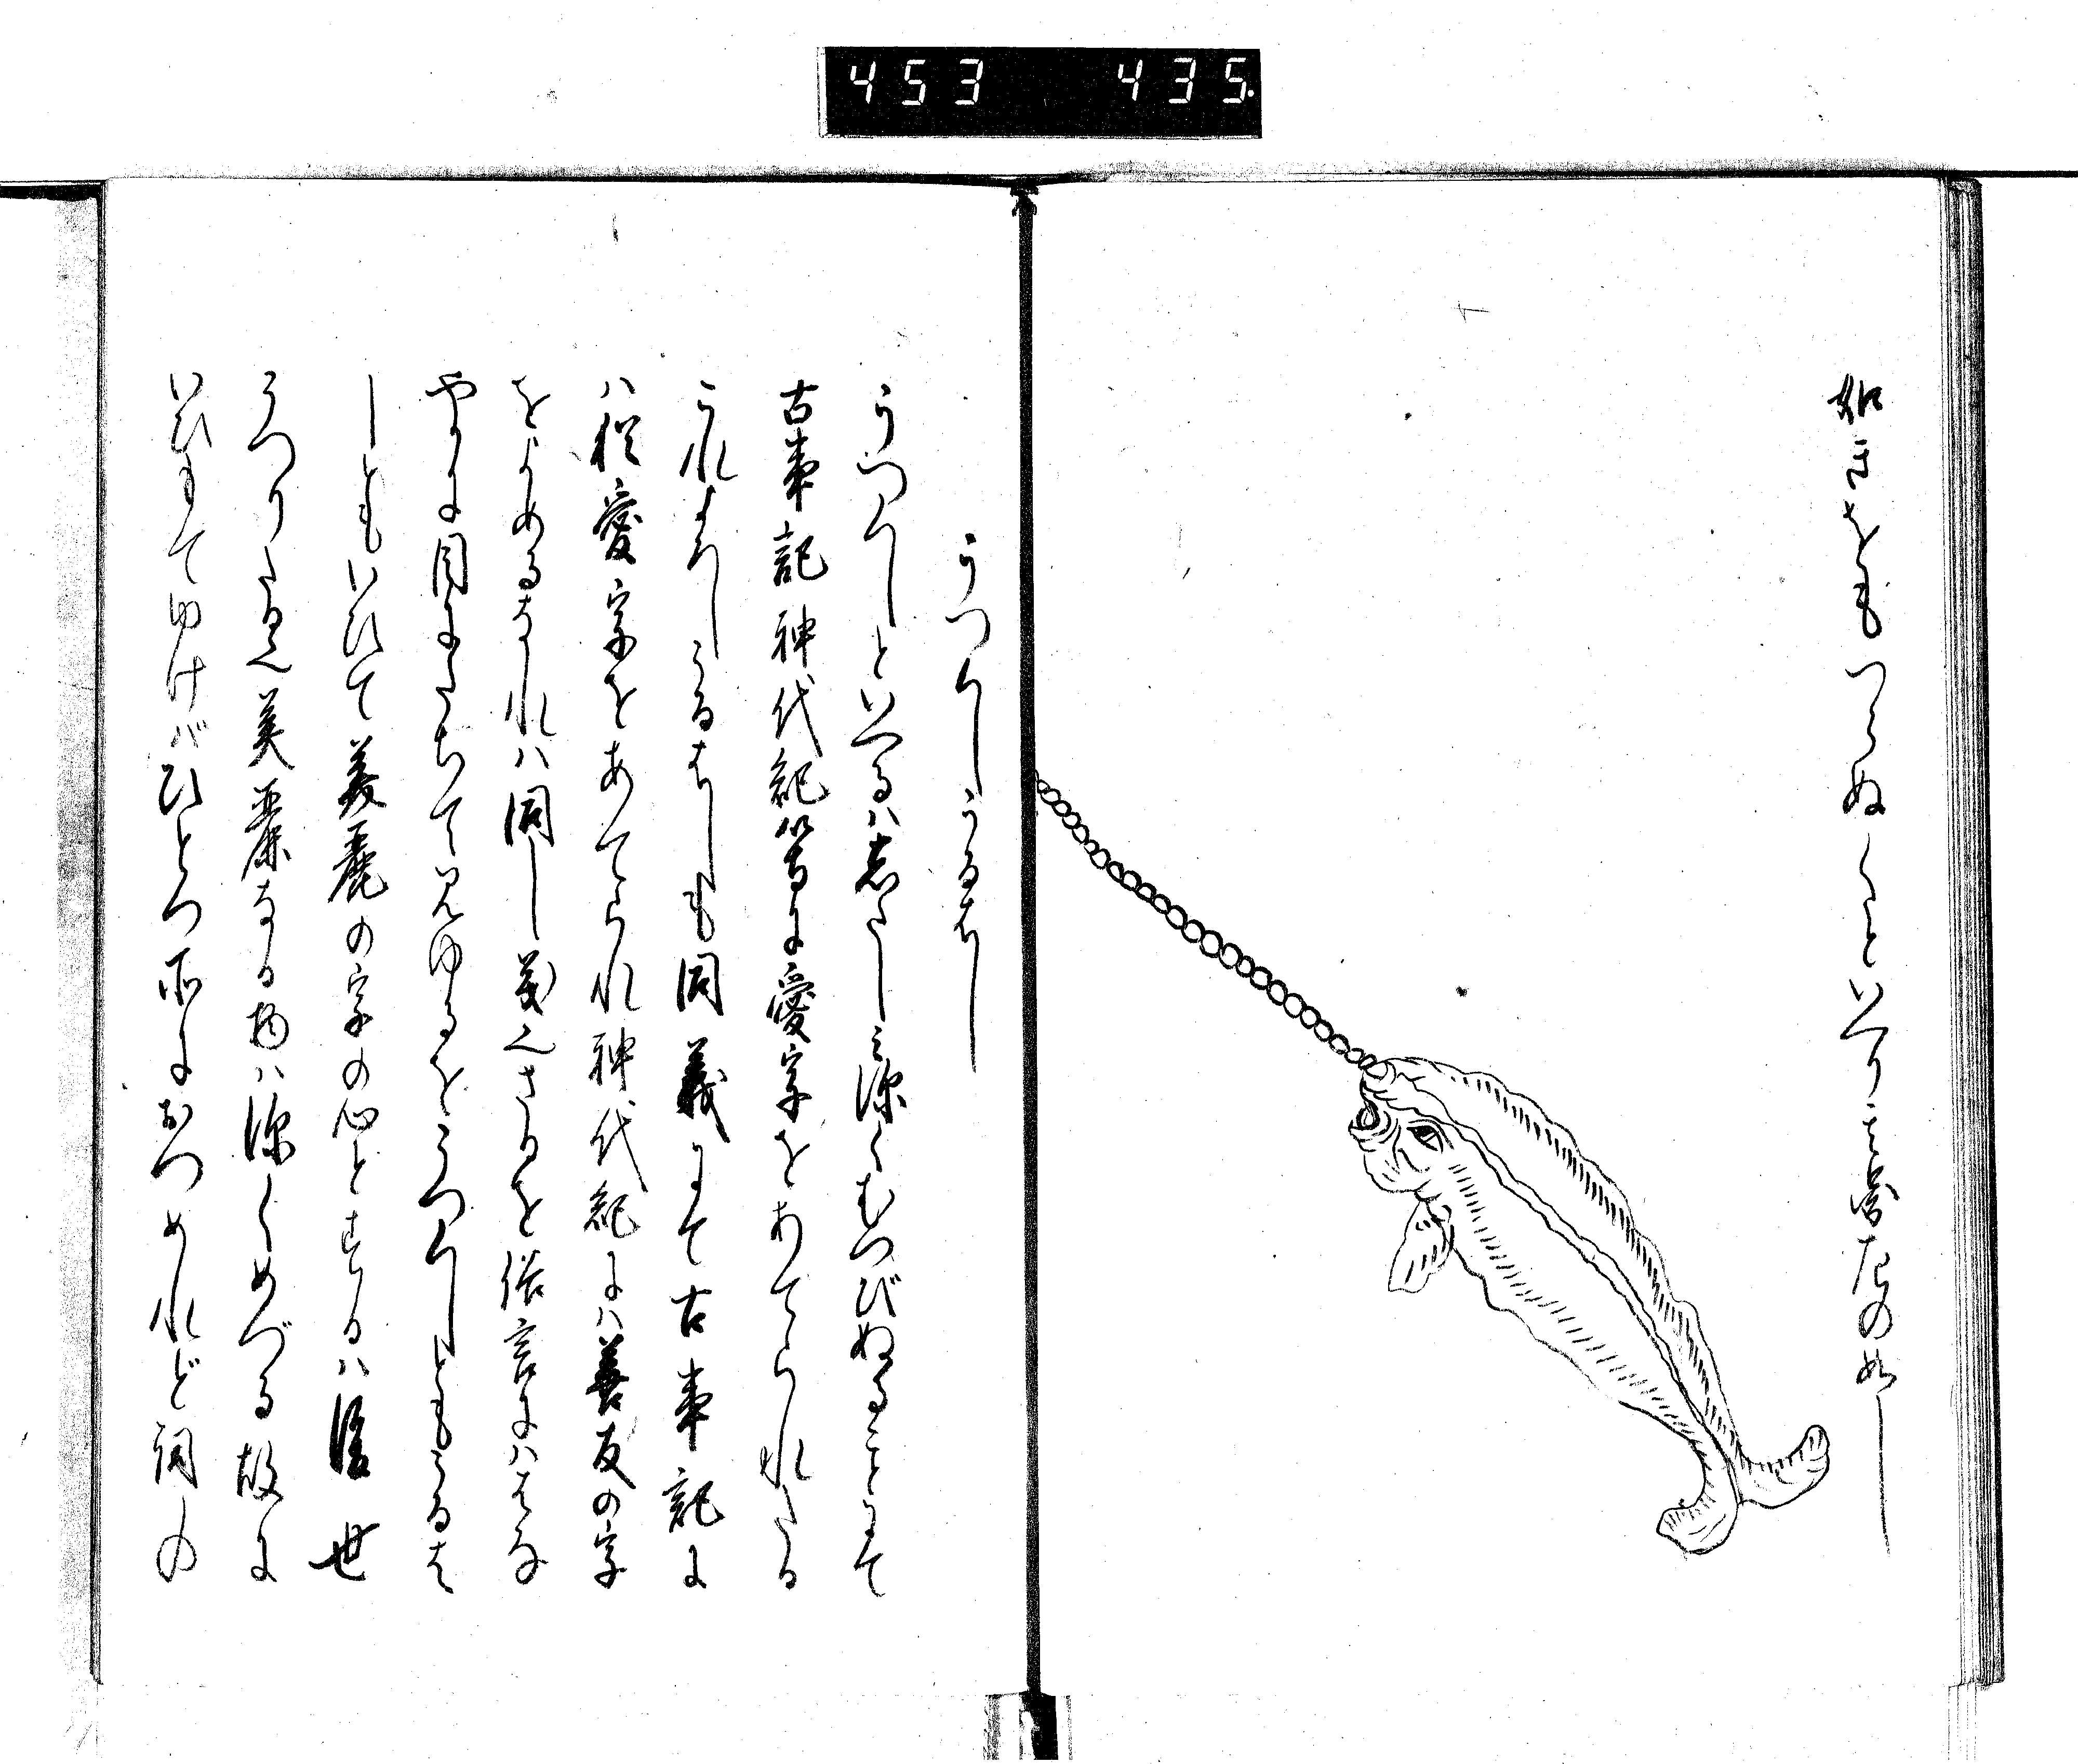 453 435.
如きをもつらぬくといへり其圖左の如し
うつくしうるはし
うつくしといへるはしたしみ深くむつびぬることにて
古事記神代紀等に愛字をあてられたる
これよろしうるはしも同義にて古事記に
ハ愛字をあてられ神代紀にハ善友の字
をよめるなれハ同し義えさるを俗言にハはな
やかに目にたちて見ゆるをうつくしともうるは
しともいひて美麗の字の心とするハ後世
うつりたる也美麗なる物ハ深くめづる故に
いひもてゆけバひとつ所におつめれど詞の